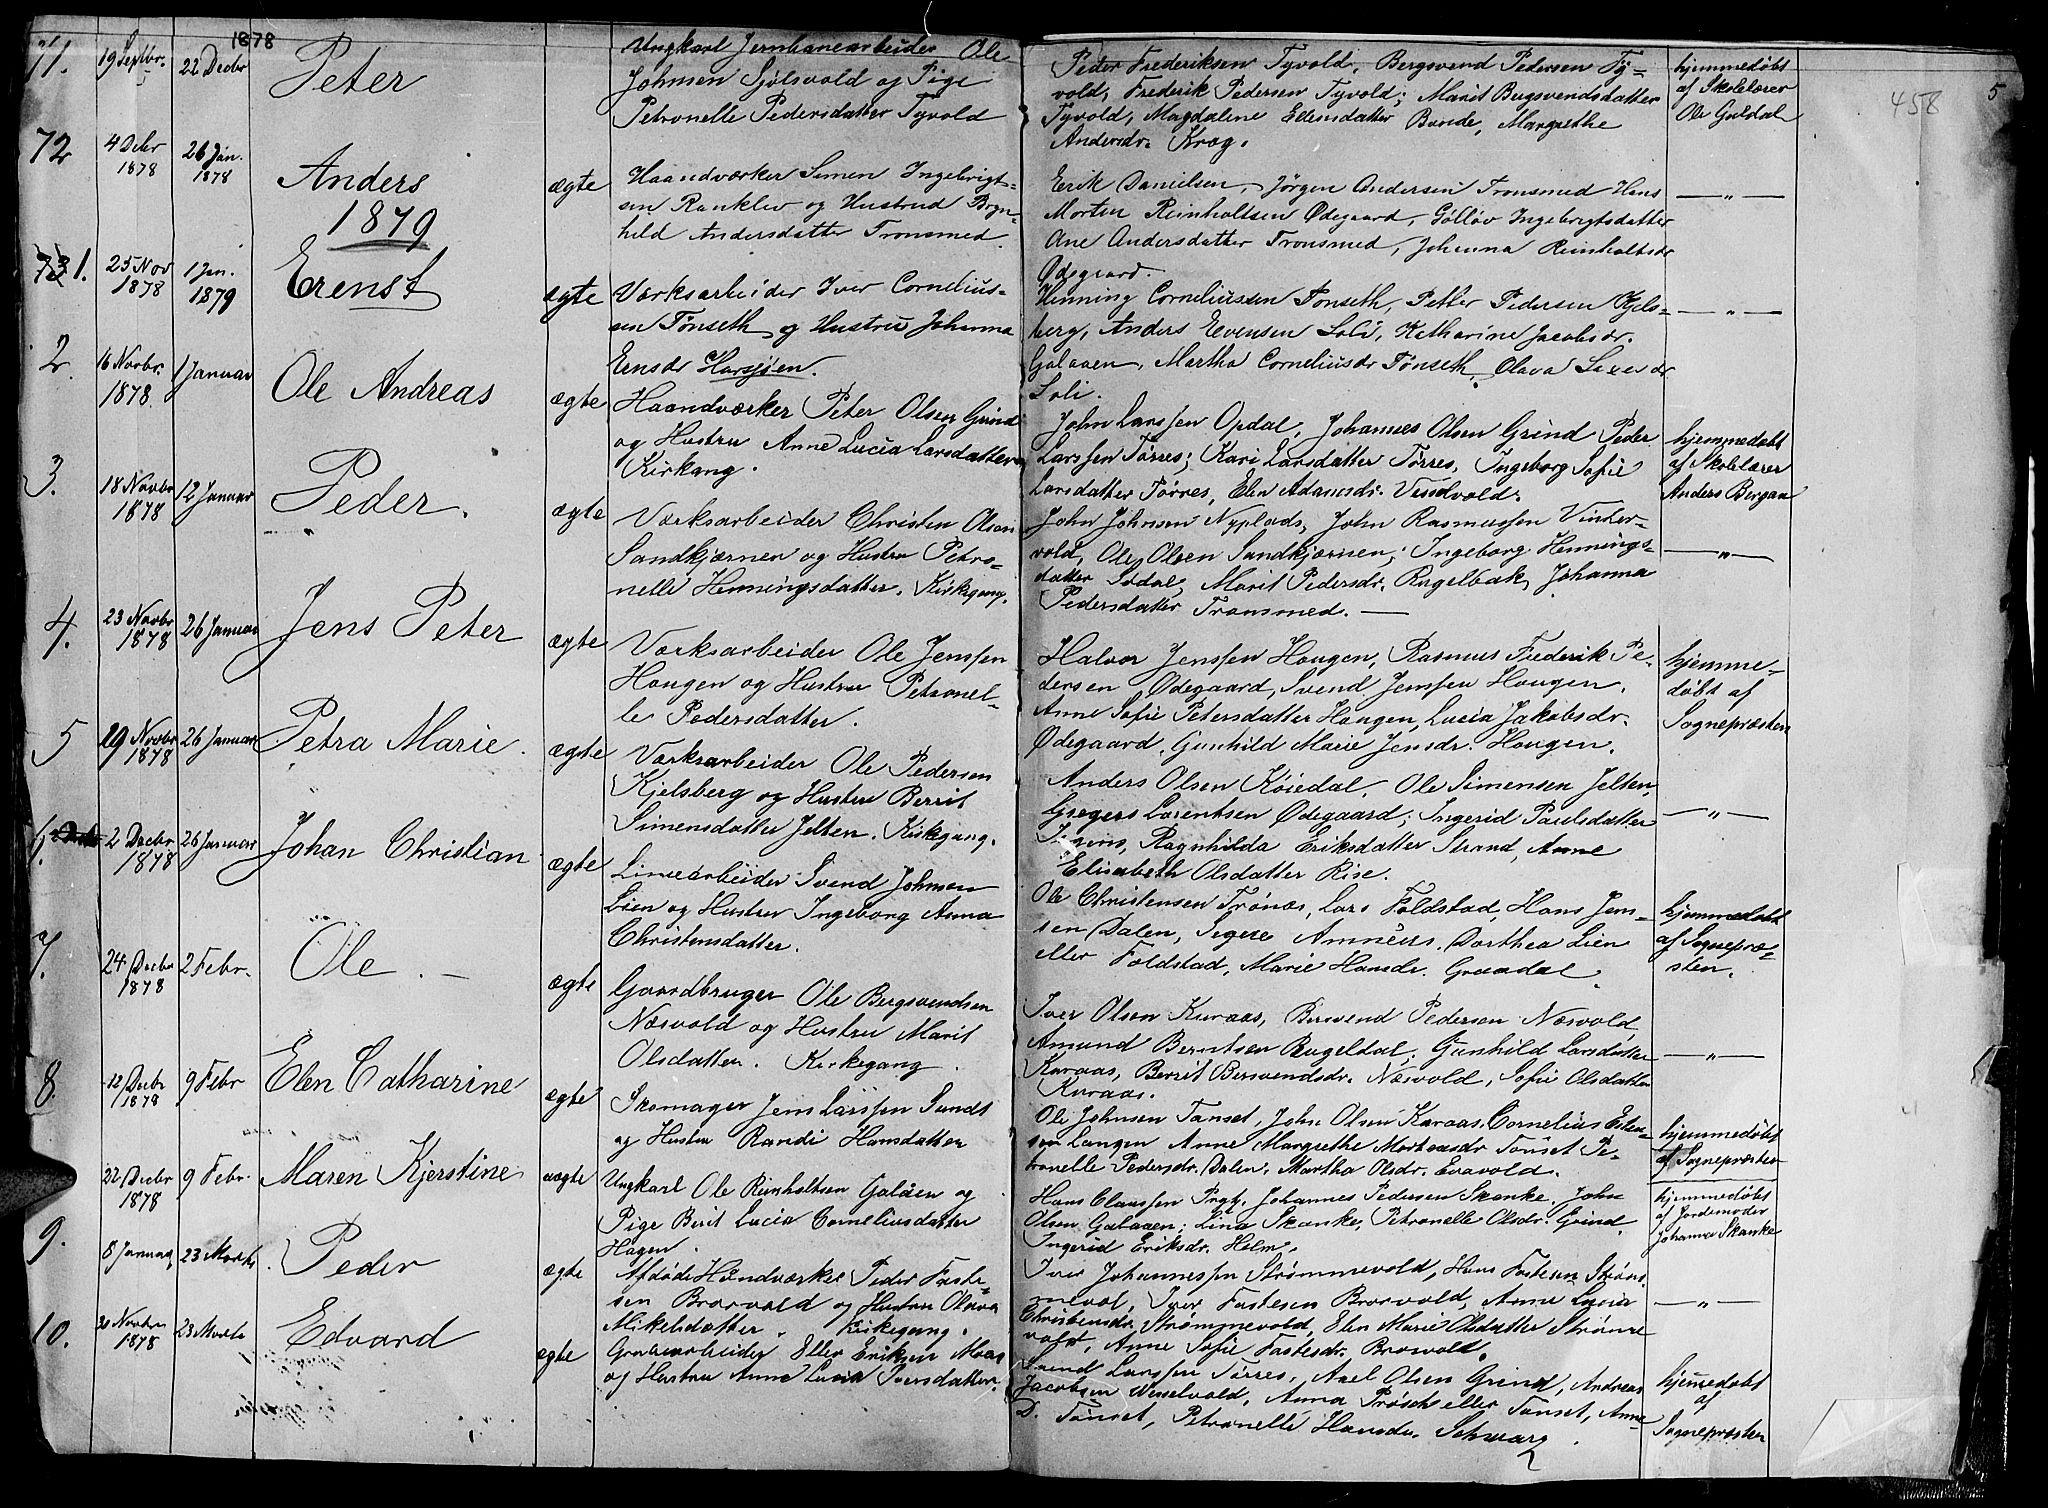 1878
71. 19 Septbr. 22 Decbr Peter
Ungkarl Jernbanearbeider Ole
Johnsen Sjølsvold og Pige
Petronelle Pedersdatter Tyvold
Peder Frederiksen Tyvold, Bergsvend Pedersen Ty-
vold, Frederik Pedersen Tyvold; Marit Bergsvendsdatter
Tyvold, Magdalene Ellensdatter Bonde, Margrethe
Andersdr. Krog.
hjemmedøbt
af Skolelærer
Ole Guldal
458
5
72 4 Debr 1878 26 Jan. 1878 Anders ægte
Haandværker Simen Ingebrigt-
sen Ranklev og Hustrud Bryn-
hild Andersdatter Tronsmed.
Erik Danielsen, Jörgen Andersen Tronsmed Hans
Morten Reinholtsen Ødegaard, Gølløv Ingebrigtsdatter
Ane Andersdatter Tronsmed, Johanna Reinholtsdr
Ødegaard.
— „ —
1879
73 1. 25 Nov 1878 1 Jan. 1879 Erenst ægte
Værksarbeider Iver Cornelius-
sen Tønseth og Hustru Johanna
Ensdr Harsjøen.
Henning Corneliussen Tonseth, Petter Pedersen Kjels-
berg, Anders Evensen Soli, Katharine Jacobsdr.
Galaaen, Martha Corneliusdr Tønseth, Olava
Soli.
— „ —
2. 16 Novbr. 1878. 1 Januar Ole Andreas ægte
Haandværker Peter Olsen Grind
og Hustru Anne Lucia Larsdatter
Kirkgang.
John Larssen Opdal, Johannes Olsen Grind Peder
Larssen Tørres; Kari Larsdatter Tørres, Ingeborg Sofie
Larsdatter Tørres, Elen Adamsdr. Vendvold.
hjemmedøbt
af Skolelærer
Anders Bergan
3. 18 Novbr 1878 12 Januar Peder. ægte
Værksarbeider Christen Olsen
Sandkjærnen og Hustru Petro-
nelle Henningsdatter. Kirkegang.
John Johnsen Nyplads, John Rasmussen Vinter-
vold, Ole Olsen Sandkjærnen; Ingeborg Hennings-
datter Sødal, Marit Pedersdr. Rugelbak, Johanna
Pedersdatter Tronsmed. —
— „ —
4. 23 Novbr 1878 26 Januar Jens Peter ægte
Værksarbeider Ole Jenssen
Hougen og Hustru Petronel-
le Pedersdatter.
Halvor Jenssen Hougen, Rasmus Frederik Pe-
dersen Ødegaard, Svend Jenssen Hougen.
Anne Sofie Petersdatter Hougen, Lucia Jakobsdr.
Ødegaard, Gunhild Marie Jensdr. Hougen.
hjemme-
døbt af
Sognepræsten
5 29 Novbr 1878 26 Januar Petra Marie. ægte
Værksarbeider Ole Pedersen
Kjelsberg og Hustru Berrit
Simensdatter Jelten. Kirkegang.
Anders Olsen Køiedal, Ole Simensen Jelten,
Gregers Lorentsen Ødegaard; Ingerid Paulsdatter
Ragnhilda Eriksdatter Strand, Anne
Elisabeth Olsdatter Rise.
— „ —
6. 2 Decbr 1878 26 Januar Johan Christian ægte
Liniearbeider Svend Johnsen
Lien og Hustru Ingeborg Anna
Christensdatter.
Ole Christensen Trønæs, Lars Foldstad, Hans Jens-
sen Dalen, Segere Amnéus. Dorthea Lien
eller Foldstad, Marie Hansdr. Graadal.
hjemmedøbt
af Sognepræ-
sten.
7. 24 Decbr 1878 2 Febr. Ole. — ægte
Gaardbruger Ole Bergsvendsen
Næsvold og Hustru Marit
Olsdatter. Kirkegang.
Iver Olsen Kuraas, Bersvend Pedersen Næsvold,
Amund Berntsen Rugeldal; Gunhild Larsdatter
Kuraas, Berrit Bersvendsdr. Næsvold, Sofie Olsdatter
Kuraas.
— „ —
8. 12 Decbr 1878 9 Febr Elen Catharine ægte
Skomager Jens Larssen Sundt
og Hustru Randi Hansdatter
Ole Johnsen Tønset, John Olsen Kuraas, Cornelius Esten-
sen Langen Anne Margrethe Mortensdr Tønset Pe-
tronelle Pedersdr. Dalen, Martha Olsdr. Evavold.
hjemmedøbt
af Sognepræsten
22 Decbr 1878 9 Febr. Maren Kjerstine uægte
Ungkarl Ole Reinholtsen Galåen og
Pige Berit Lucia Corneliusdatter
Hagen.
Hans Claussen Prytz, Johannes Pedersen Skanke, John
Olsen Galaaen; Lina Skanke, Petronelle Olsdr. Grind,
Ingerid Eriksdr. Holm.
hjemmedøbt
af Jordemoder
Johanna Skanke
9. 8 Januar 23 Marts Peder ægte
Afdøde Håndværker Peder Faste-
sen Brorvold og Hustru Olava
Mikelsdatter. Kirkegang.
Iver Johannessen Strømmevold, Hans Fastesen Strøm-
mevol, Iver Fastesen Brorvold, Anne Lucia
Christensdr. Strømmevold, Elen Marie Olsdatter Strømme
vold, Anne Sofie Fastesdr. Brorvold.
— „ —
10. 30 Novbr 1878 23 Marts Edvard ægte
Grubearbeider Ellev Eriksen Moan
og Hustru Anne Lucia Iversdatter.
Svend Larssen Tørres, Axel Olsen Grind, Andreas
Jacobsen Wesselvold, Anna Prösch eller Tønset, Anne
D. Tønset, Petronelle Hansdr. Schwarz.
hjemmedøbt
af
Sognepræsten